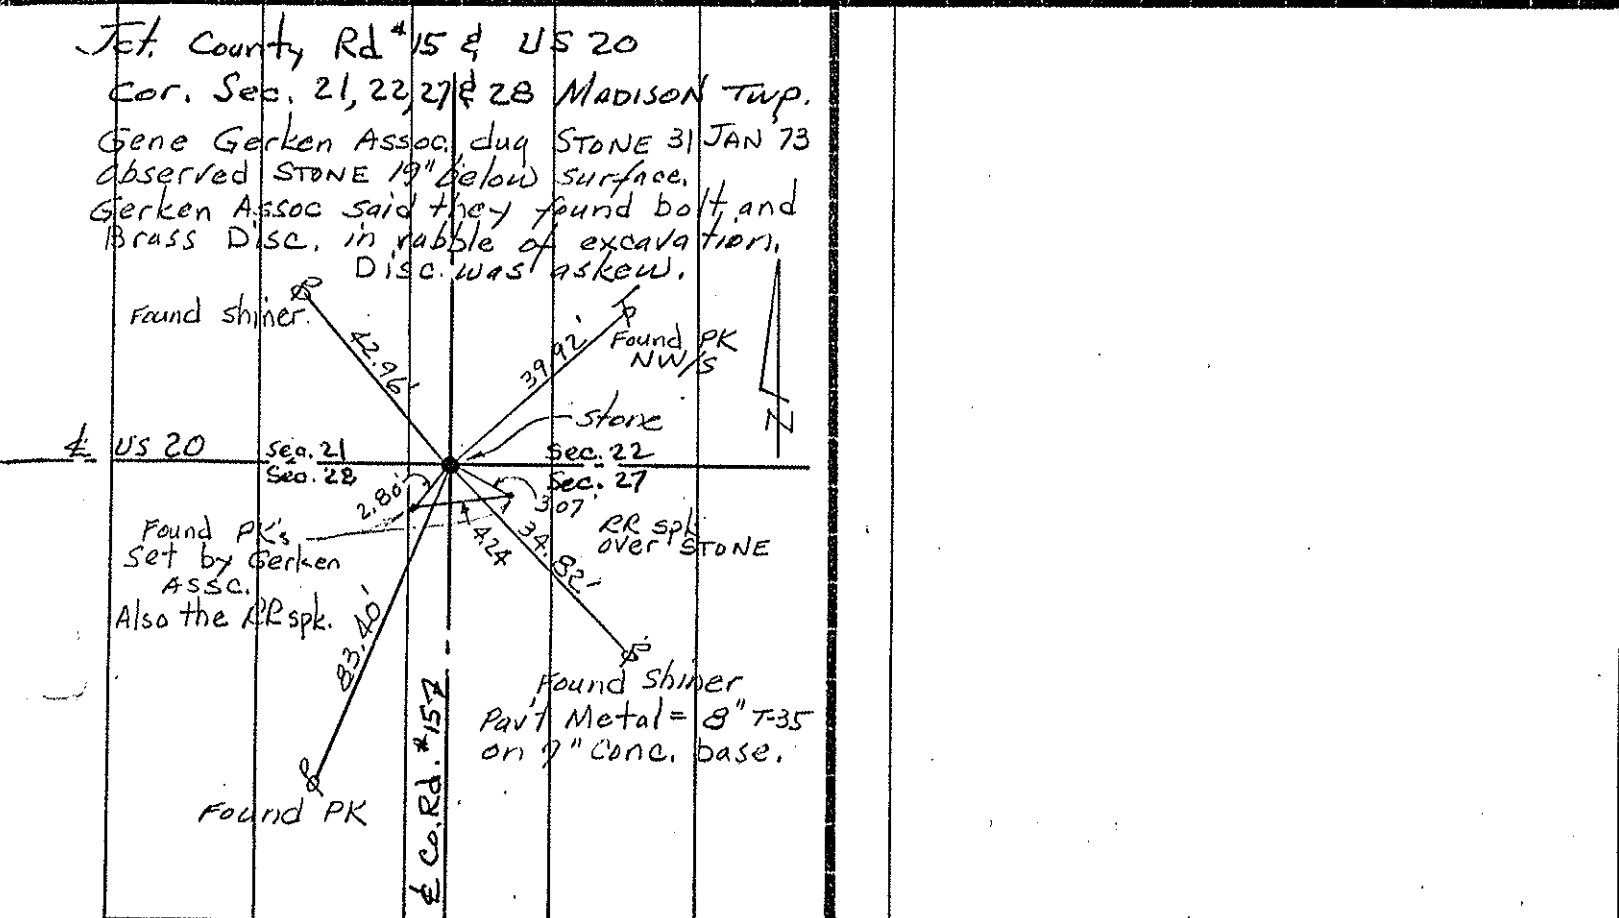 Jct. County Rd #15 & US 20
Cor. Sec. 21, 22, 27 & 28 MADISON TWP.
Gene Gerken Assoc. dug STONE 31 JAN '73
Observed STONE 19" below surface.
Gerken Assoc said they found bolt and
Brass Disc. in rubble of excavation.
Disc. was askew.
Found shiner.
42.96'
39.92'
Found PK
NW/S
N
Stone
℄ US 20
Sec. 21
Sec. 22
Sec. 28
Sec. 27
2.80'
3.07'
4.24
34.82'
RR spk
over STONE
Found PK's
Set by Gerken
ASSC.
Also the RR spk.
83.40'
Found Shiner
Pav't Metal = 8" T-35
on 9" Conc. base.
Found PK
℄ Co. Rd. #15